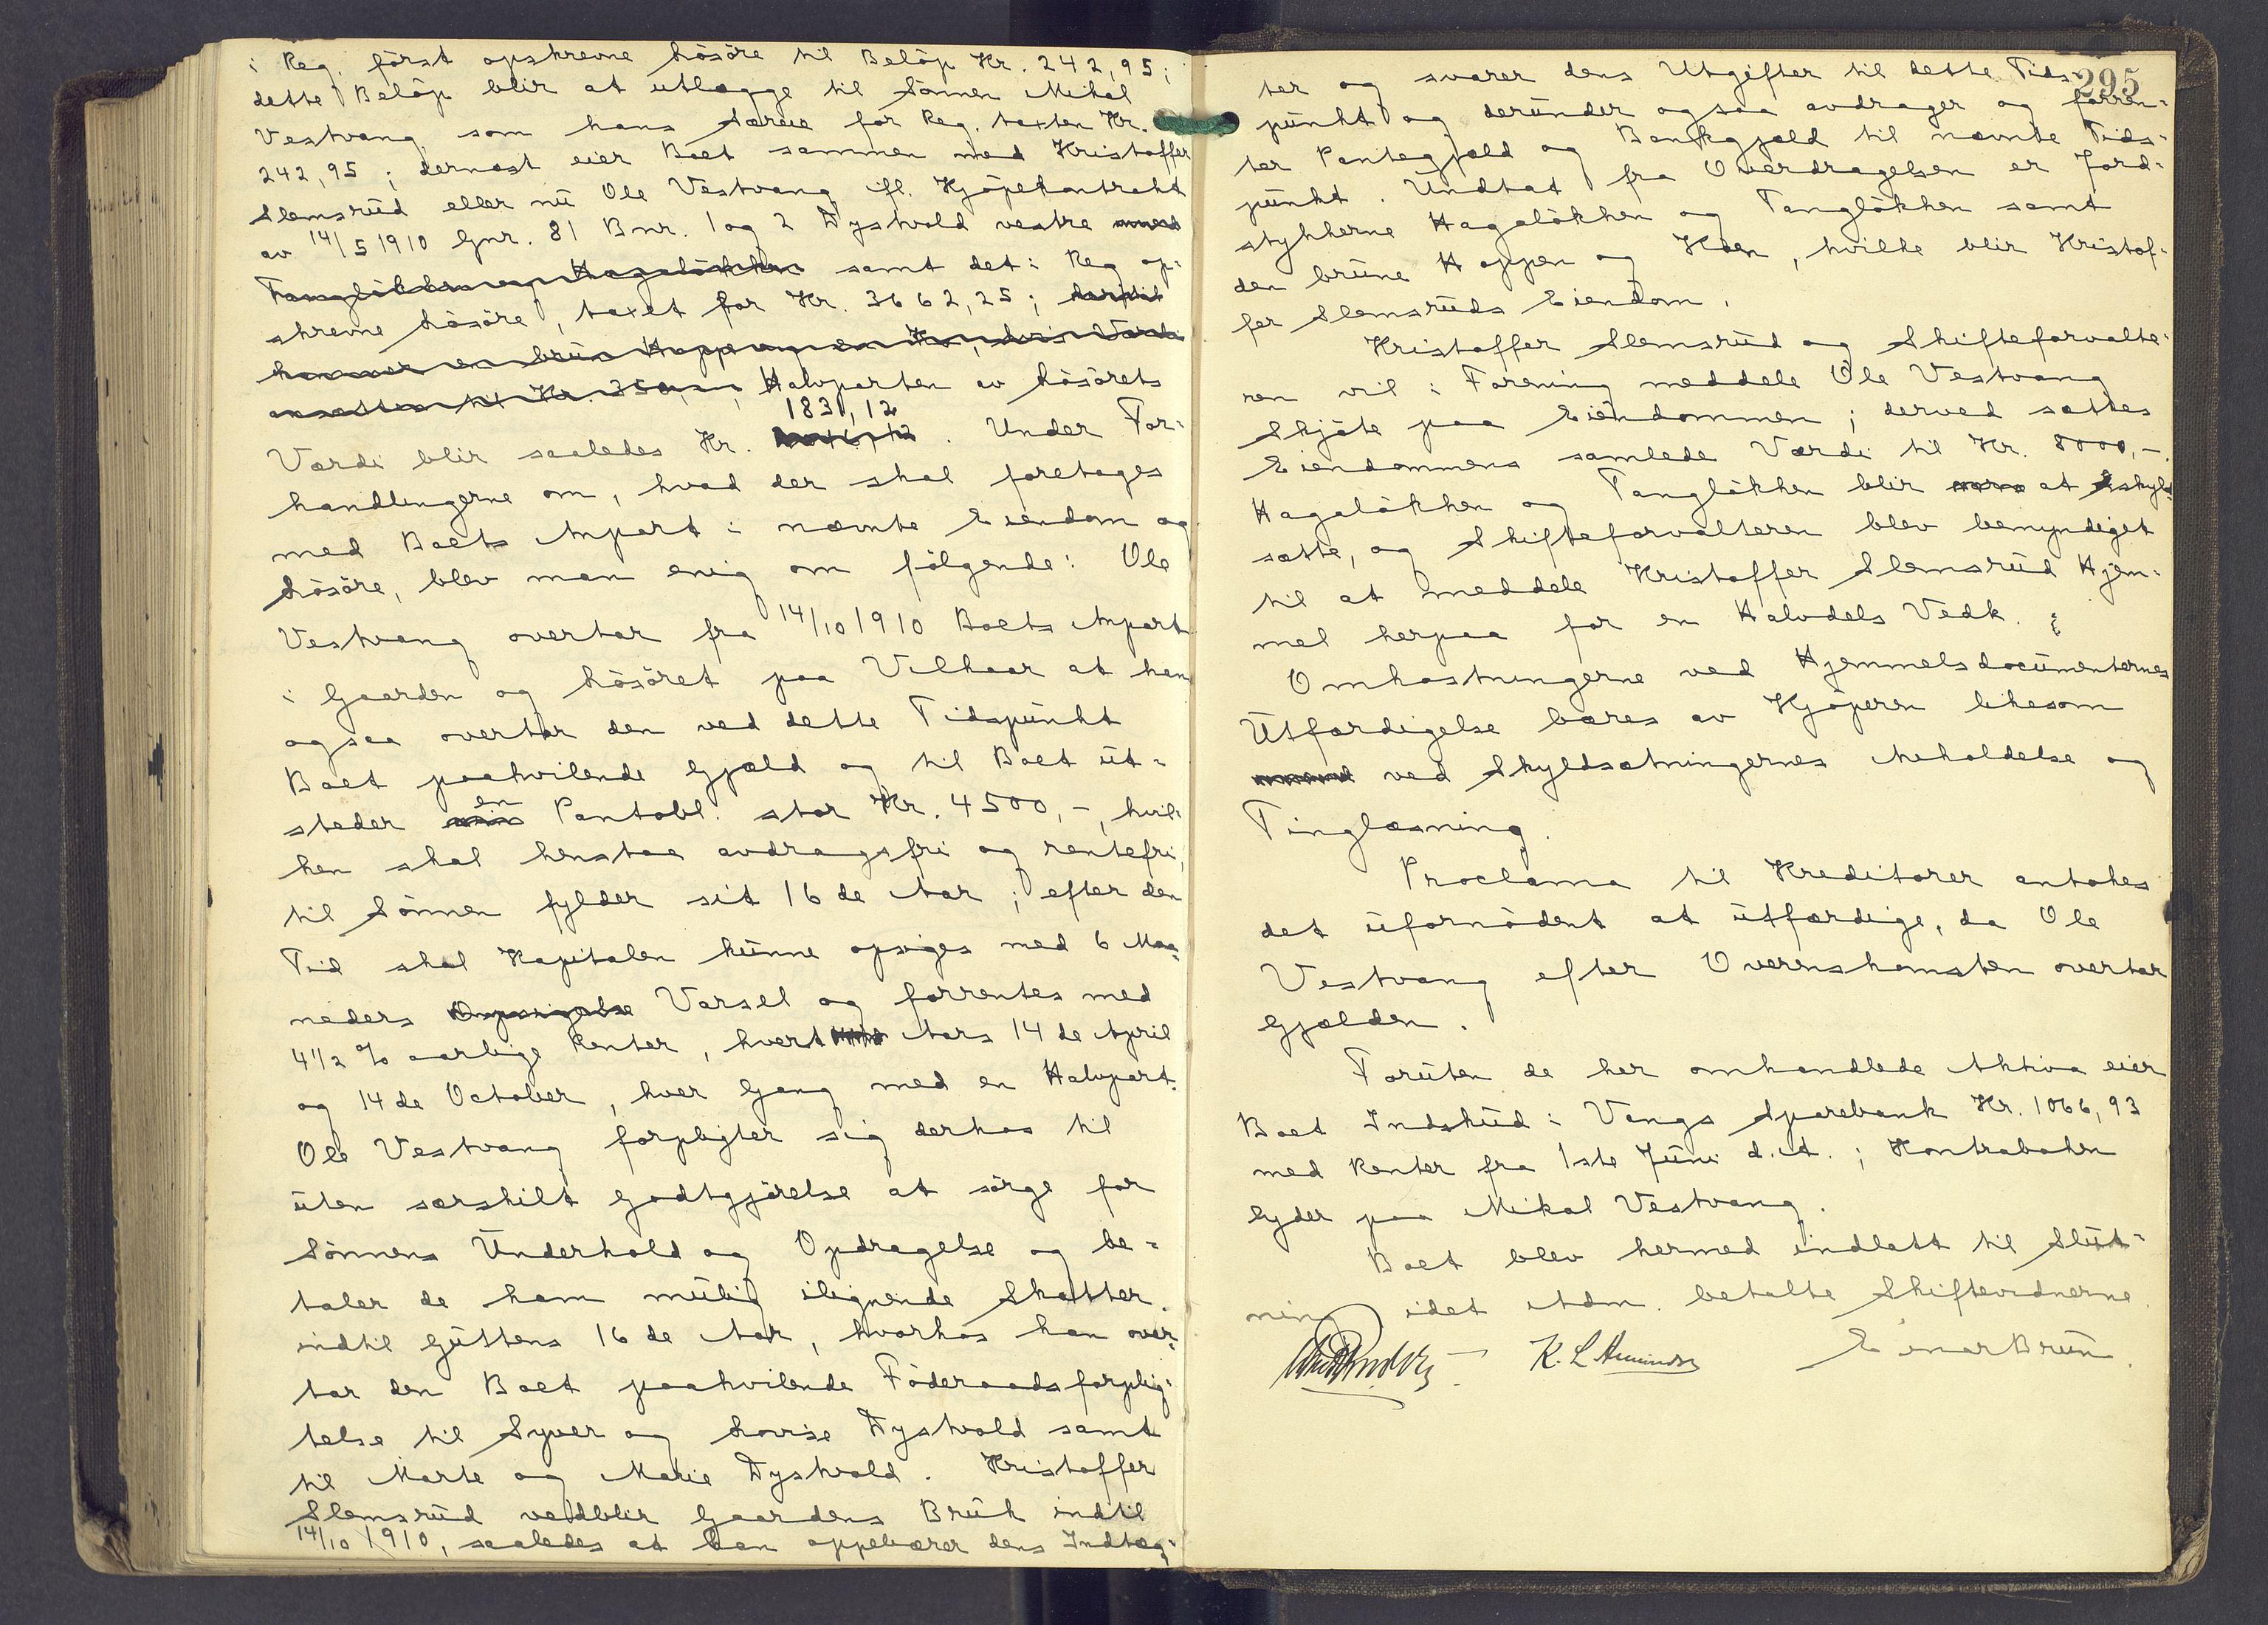 i Reg. först opskrevne Lösöre til Belöp Kr. 242,95;
dette Belöp blir at utlægge til Sönnen Mikal
Vestvang, som hans Særeie for Reg. taxten Kr.
242,95; dernæst eier Boet sammen med Kristoffer
Slemsrud eller nu Ole Vestvang ifl. Kjöpekontrakt
av 14/5 1910 Gnr. 81 Bnr. 1 og 2 Dystvold vestre
Tanglökken og Hagalökken samt det i Reg. op-
skrevne Lösöre, taxet for Kr. 3662,25; hertil
kommer en brun Hoppe og en Ko, hvis Værdi
ansættes til Kr. 350,-, Halvparten av Lösörets
1831,12
Værdi blir saaledes Kr. . Under For-
handlingerne om, hvad der skal foretages
med Boets Anpart i nævnte Eiendom og
Lösöre, blev man enig om fölgende: Ole
Vestvang overtar fra 14/10 1910 Boets Anpart
i Gaarden og Lösöret paa Vilkaar at han
ogsaa overtar den ved dette Tidspunkt
Boet paahvilende Gjæld og til Boet ut-
en
steder Pantobl. stor Kr. 4500,-, hvil-
ken skal henstaa avdragsfri og rentefri,
til Sönnen fylder sit 16de Aar; efter den
Tid skal Kapitalen kunne opsiges med 6 Maa-
neders Opsigelse Varsel og forrentes med
4 1/2 % aarlige Renter, hvert Aars 14de April
og 14de October, hver Gang med en Halvpart.
Ole Vestvang forpligter sig derhos til
uten særskilt Godtgjörelse at sörge for
Sönnens Underhold og Opdragelse og be-
taler de ham mulig ilignende Skatter
indtil Guttens 16de Aar, hvorhos han over-
tar den Boet paahvilende Föderaadsforplig-
telse til Syver og Lovise Dystvold samt
til Marte og Marie Dystvold. Kristoffer
Slemsrud vedblir Gaardens Bruk indtil
14/10 1910, saaledes at han oppebærer dens Indtæg-
295
ter og svarer dens Utgifter til dette Tids-
punkt og derunder ogsaa avdrager og forren-
ter Pantegjæld og Bankgjæld til nævnte Tids-
punkt. Undtat fra Overdragelsen er Jord-
stykkerne Hagalökken og Tanglökken samt
den brune Hoppen og Koen, hvilke blir Kristof-
fer Slemsruds Eiendom.
Kristoffer Slemsrud og Skifteforvalte-
ren vil i Forening meddele Ole Vestvang
Skjöte paa Eiendommen; derved sættes
Eiendommens samlede Værdi til Kr. 8000,-.
Hagalökken og Tanglökken blir at skyld-
sætte, og Skifteforvalteren blev bemyndiget
til at meddele Kristoffer Slemsrud Hjem-
mel herpaa for en Halvdels Vedk.
Omkostningerne ved Hjemmelsdocumenternes
Utfærdigelse bæres av Kjöperen likesom
ved Skyldsætningernes Avholdelse og
Tinglæsning.
Proclama til Kreditorer antokes
det ufornödent at utfærdige, da Ole
Vestvang efter Overenskomsten overtar
Gjælden.
Foruten de her omhandlede Aktiva eier
Boet Indskud i Vangs Sparebank Kr. 1066,93
med Renter fra 1ste Juni d.A.; Kontraboken
lyder paa Mikal Vestvang.
Boet blev hermed indlatt til Slut-
ning idet Adm. betalte Skiftevidnerne.
K. L. Einar Brun.